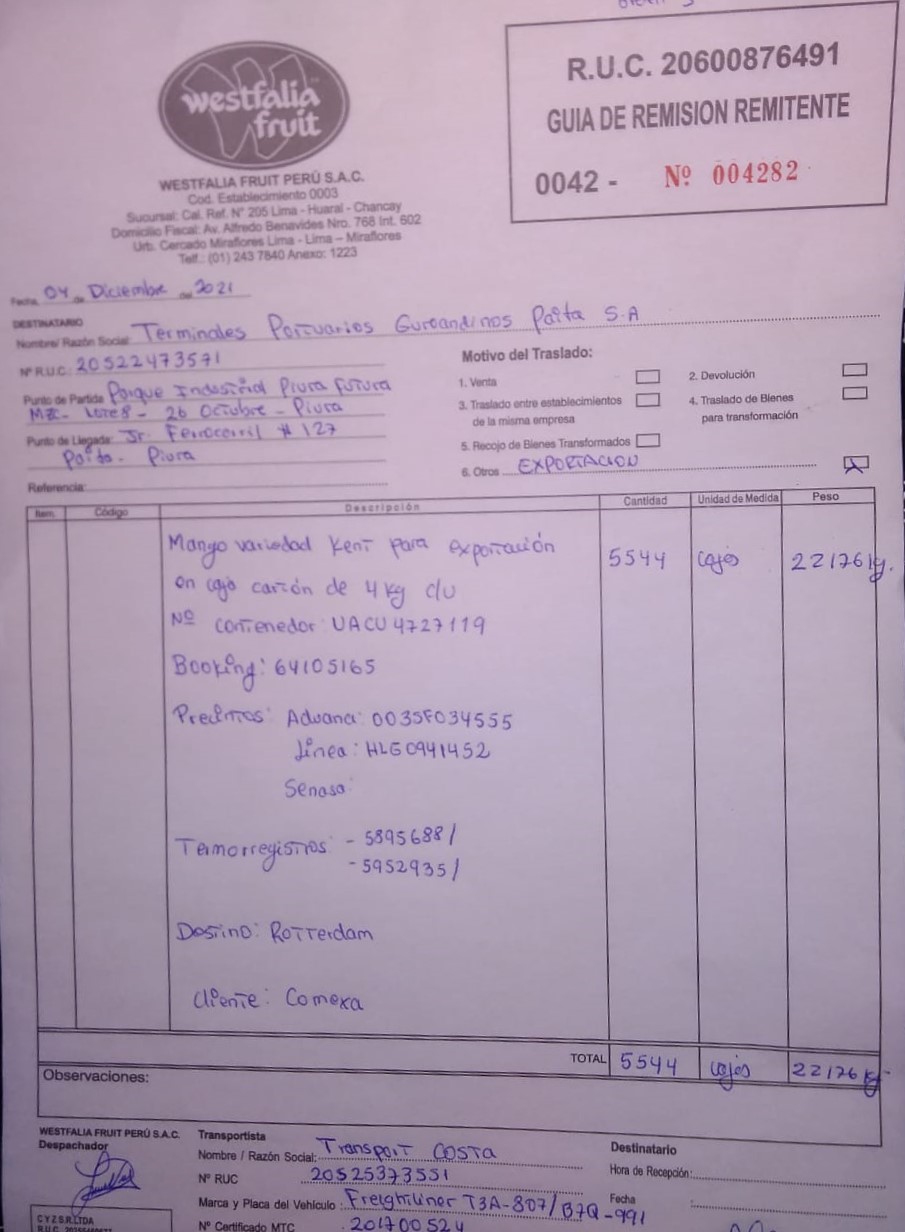 westfalia
fruit
WESTFALIA FRUIT PERÚ S.A.C.
Cod. Establecimiento 0003
Sucursal: Cal. Ref. N° 205 Lima - Huaral - Chancay
Domicilio Fiscal: Av. Alfredo Benavides Nro. 768 Int. 602
Urb. Cercado Miraflores Lima - Lima - Miraflores
Telf.: (01) 243 7840 Anexo: 1223
R.U.C. 20600876491
GUIA DE REMISION REMITENTE
0042 - Nº 004282
Fecha, 04 de Diciembre del 2021
DESTINATARIO
Nombre/ Razón Social: Terminales Portuarios Euroandinos Paita S.A
Nº R.U.C: 20522473571
Punto de Partida Parque Industrial Piura futura
Mz- Lote 8 - 26 Octubre - Piura
Punto de Llegada: Jr. Ferrocarril # 127
Paita - Piura
Referencia:
Motivo del Traslado:
1. Venta
2. Devolución
3. Traslado entre establecimientos
de la misma empresa
4. Traslado de Bienes
para transformación
5. Recojo de Bienes Transformados
6. Otros EXPORTACION
Item. Código Descripción Cantidad Unidad de Medida Peso
Mango variedad Kent para exportación 5544 cajas 22176 kg.
en caja cartón de 4 kg c/u
Nº contenedor: UACU 4727119
Booking: 64105165
Precintos: Aduana: 0035F034555
Línea: HLG0941452
Senasa:
Termorregistros: - 5895688/
- 5952935/
Destino: Rotterdam
Cliente: Comexa
TOTAL 5544 cajas 22176 kg.
Observaciones:
WESTFALIA FRUIT PERÚ S.A.C.
Despachador
Transportista
Nombre / Razón Social: Transport Costa
Nº RUC 20525373551
Marca y Placa del Vehículo: Freightliner T3A-807/B7Q-991
Nº Certificado MTC 201700524
Destinatario
Hora de Recepción:
Fecha
CYZ S.R.LTDA